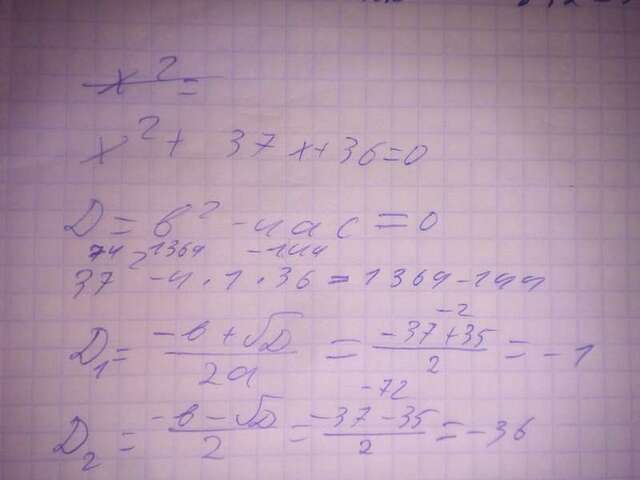 x² =
x² + 37x + 36 = 0
D = в² - 4ac = 0
1369 - 144
37² - 4 · 1 · 36 = 1369 - 144
D₁ = (-в + √D) / 2a = (-37 + 35) / 2 = -1
-2
D₂ = (-в - √D) / 2 = (-37 - 35) / 2 = -36
-72